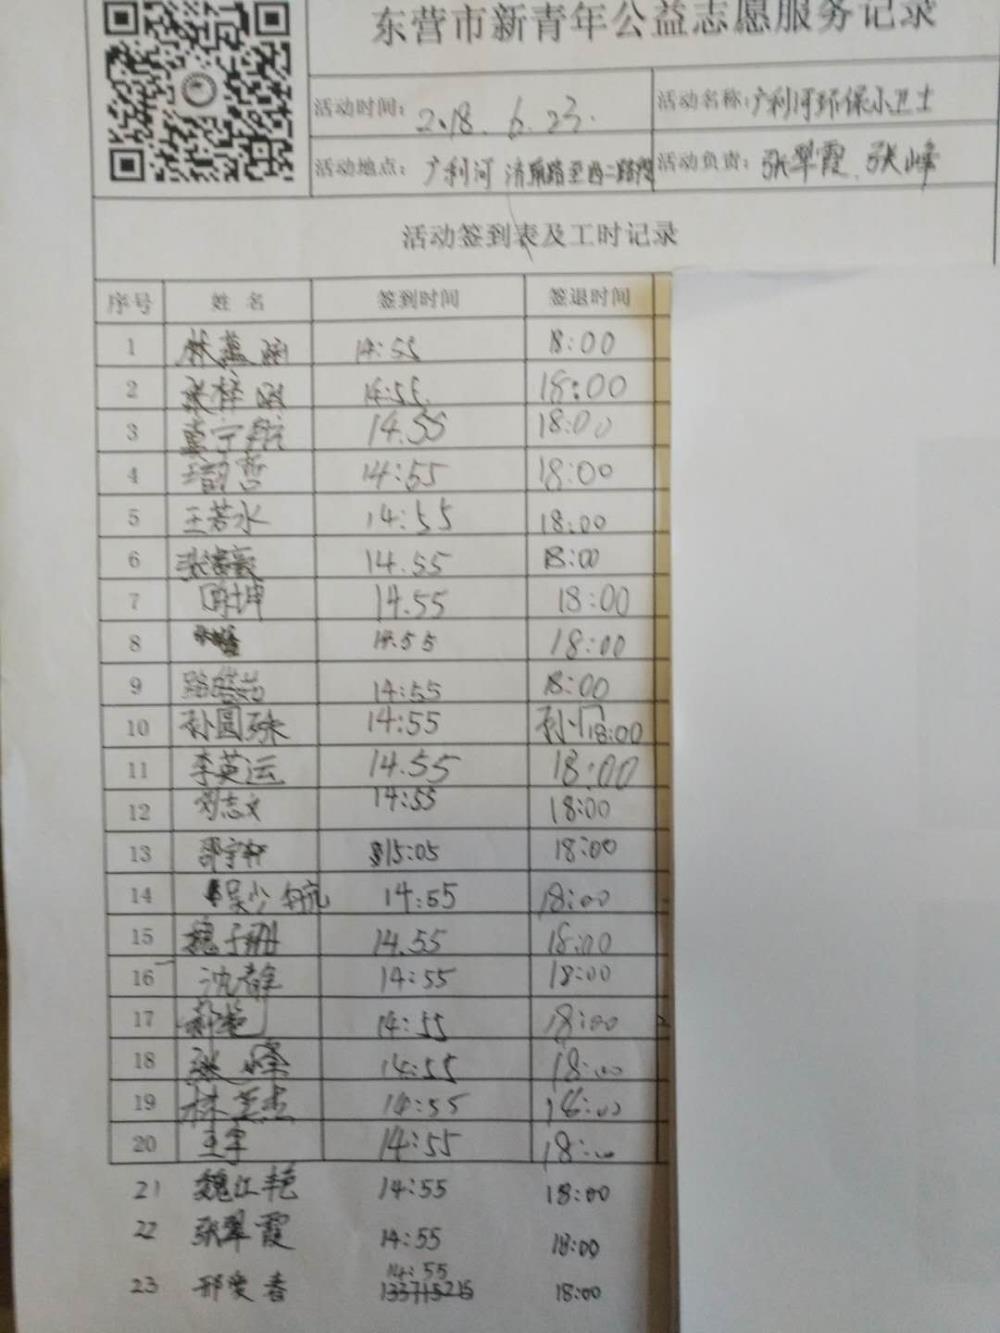 东营市新青年公益志愿服务记录
活动时间: 2018.6.23. 活动名称: 广利河环保小卫士
活动地点: 广利河 至西二路 活动负责: 张翠霞、张峰
活动签到表及工时记录
序号 姓名 签到时间 签退时间
1 林 14:55 18:00
2 张梓 14:55 18:00
3 宁航 14.55 18:00
4 哲 14:55 18:00
5 王若水 14:55 18:00
6 张 14.55 18:00
7 坤 14.55 18:00
8 14:55 18:00
9 路 14:55 18:00
10 孙圆 14:55 孙 18:00
11 李英运 14.55 18:00
12 刘志文 14:55 18:00
13 邵宇轩 15:05 18:00
14 吴少航 14:55 18:00
15 魏子珊 14.55 18:00
16 沈静 14:55 18:00
17 14:55 18:00
18 张峰 14:55 18:00
19 林 14:55 18:00
20 王宇 14:55 18:00
21 魏江艳 14:55 18:00
22 张翠霞 14:55 18:00
14:55
23 邢爱春 18:00